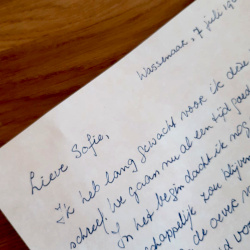 Wassenaar, 7 juli 19
Lieve Sofie,
Ik heb lang gewacht voor ik deze
schreef. We gaan nu al een tijd goed
In het begin dacht ik nog
schappelijk zou blijven
de oever